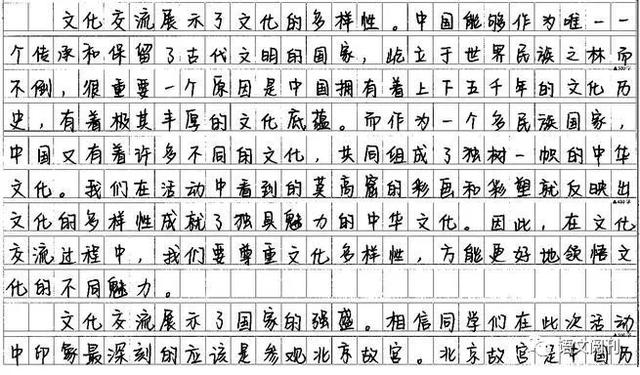 文化交流展示了文化的多样性。中国能够作为唯一一
个传承和保留了古代文明的国家，屹立于世界民族之林而
不倒，很重要一个原因是中国拥有着上下五千年的文化历
史，有着极其丰厚的文化底蕴。而作为一个多民族国家，
中国又有着许多不同的文化，共同组成了独树一帜的中华
文化。我们在活动中看到的莫高窟的彩画和彩塑就反映出
文化的多样性成就了独具魅力的中华文化。因此，在文化
交流过程中，我们要尊重文化多样性，方能更好地领悟文
化的不同魅力。
文化交流展示了国家的强盛。相信同学们在此次活动
中印象最深刻的应该是参观北京故宫。北京故宫是中国历
语文阅刊